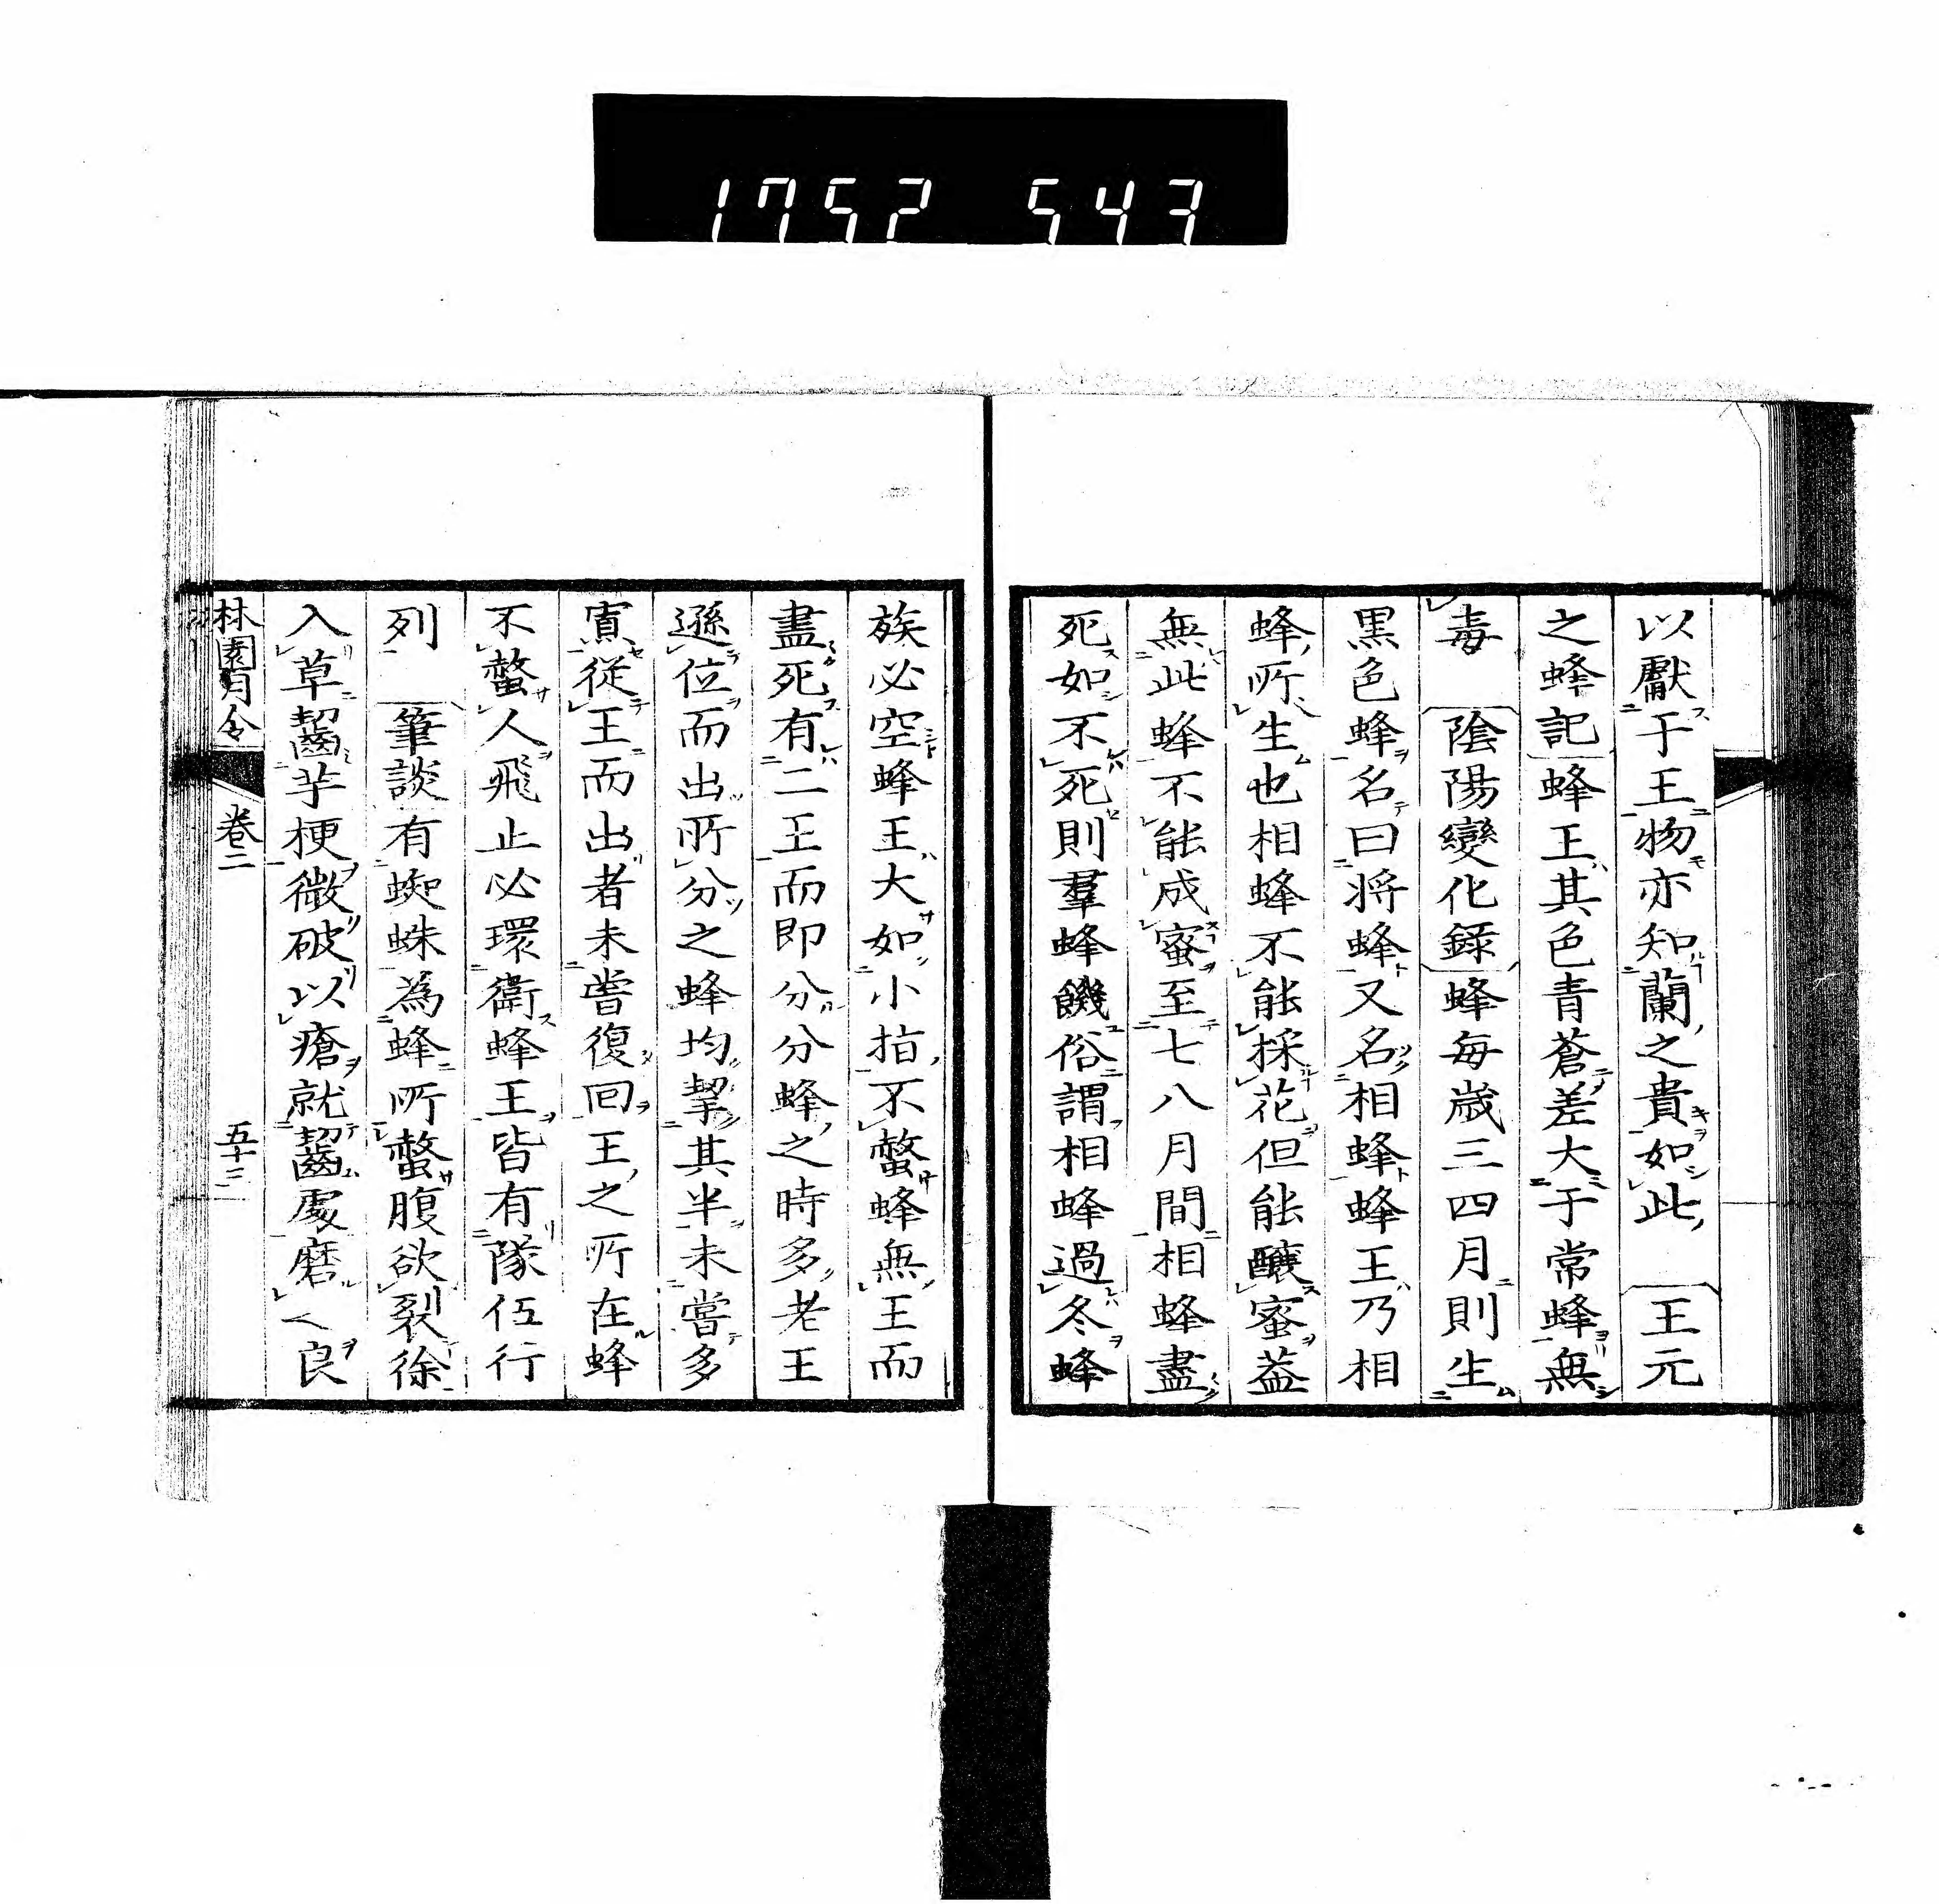 1752 543
以獻于王物亦知蘭之貴如此 王元
之蜂記蜂王其色青蒼差大于常蜂無
毒 陰陽變化錄蜂每歲三四月則生
黒色蜂名曰將蜂又名相蜂蜂王乃相
蜂所生也相蜂不能採花但能釀蜜葢
無此蜂不能成蜜至七八月間相蜂盡
死如不死則羣蜂饑俗謂相蜂過冬蜂
族必空蜂王大如小指不螫蜂無王而
盡死有二王而即分分蜂之時多老王
遜位而出所分之蜂均挈其半未嘗多
寡從王而出者未嘗復回王之所在蜂
不螫人飛止必環衞蜂王皆有隊伍行
列 筆談有蜘蛛為蜂所螫腹欲裂徐
入草齧芋梗微破以瘡就齧處磨之良
林園月令 卷二 五十三